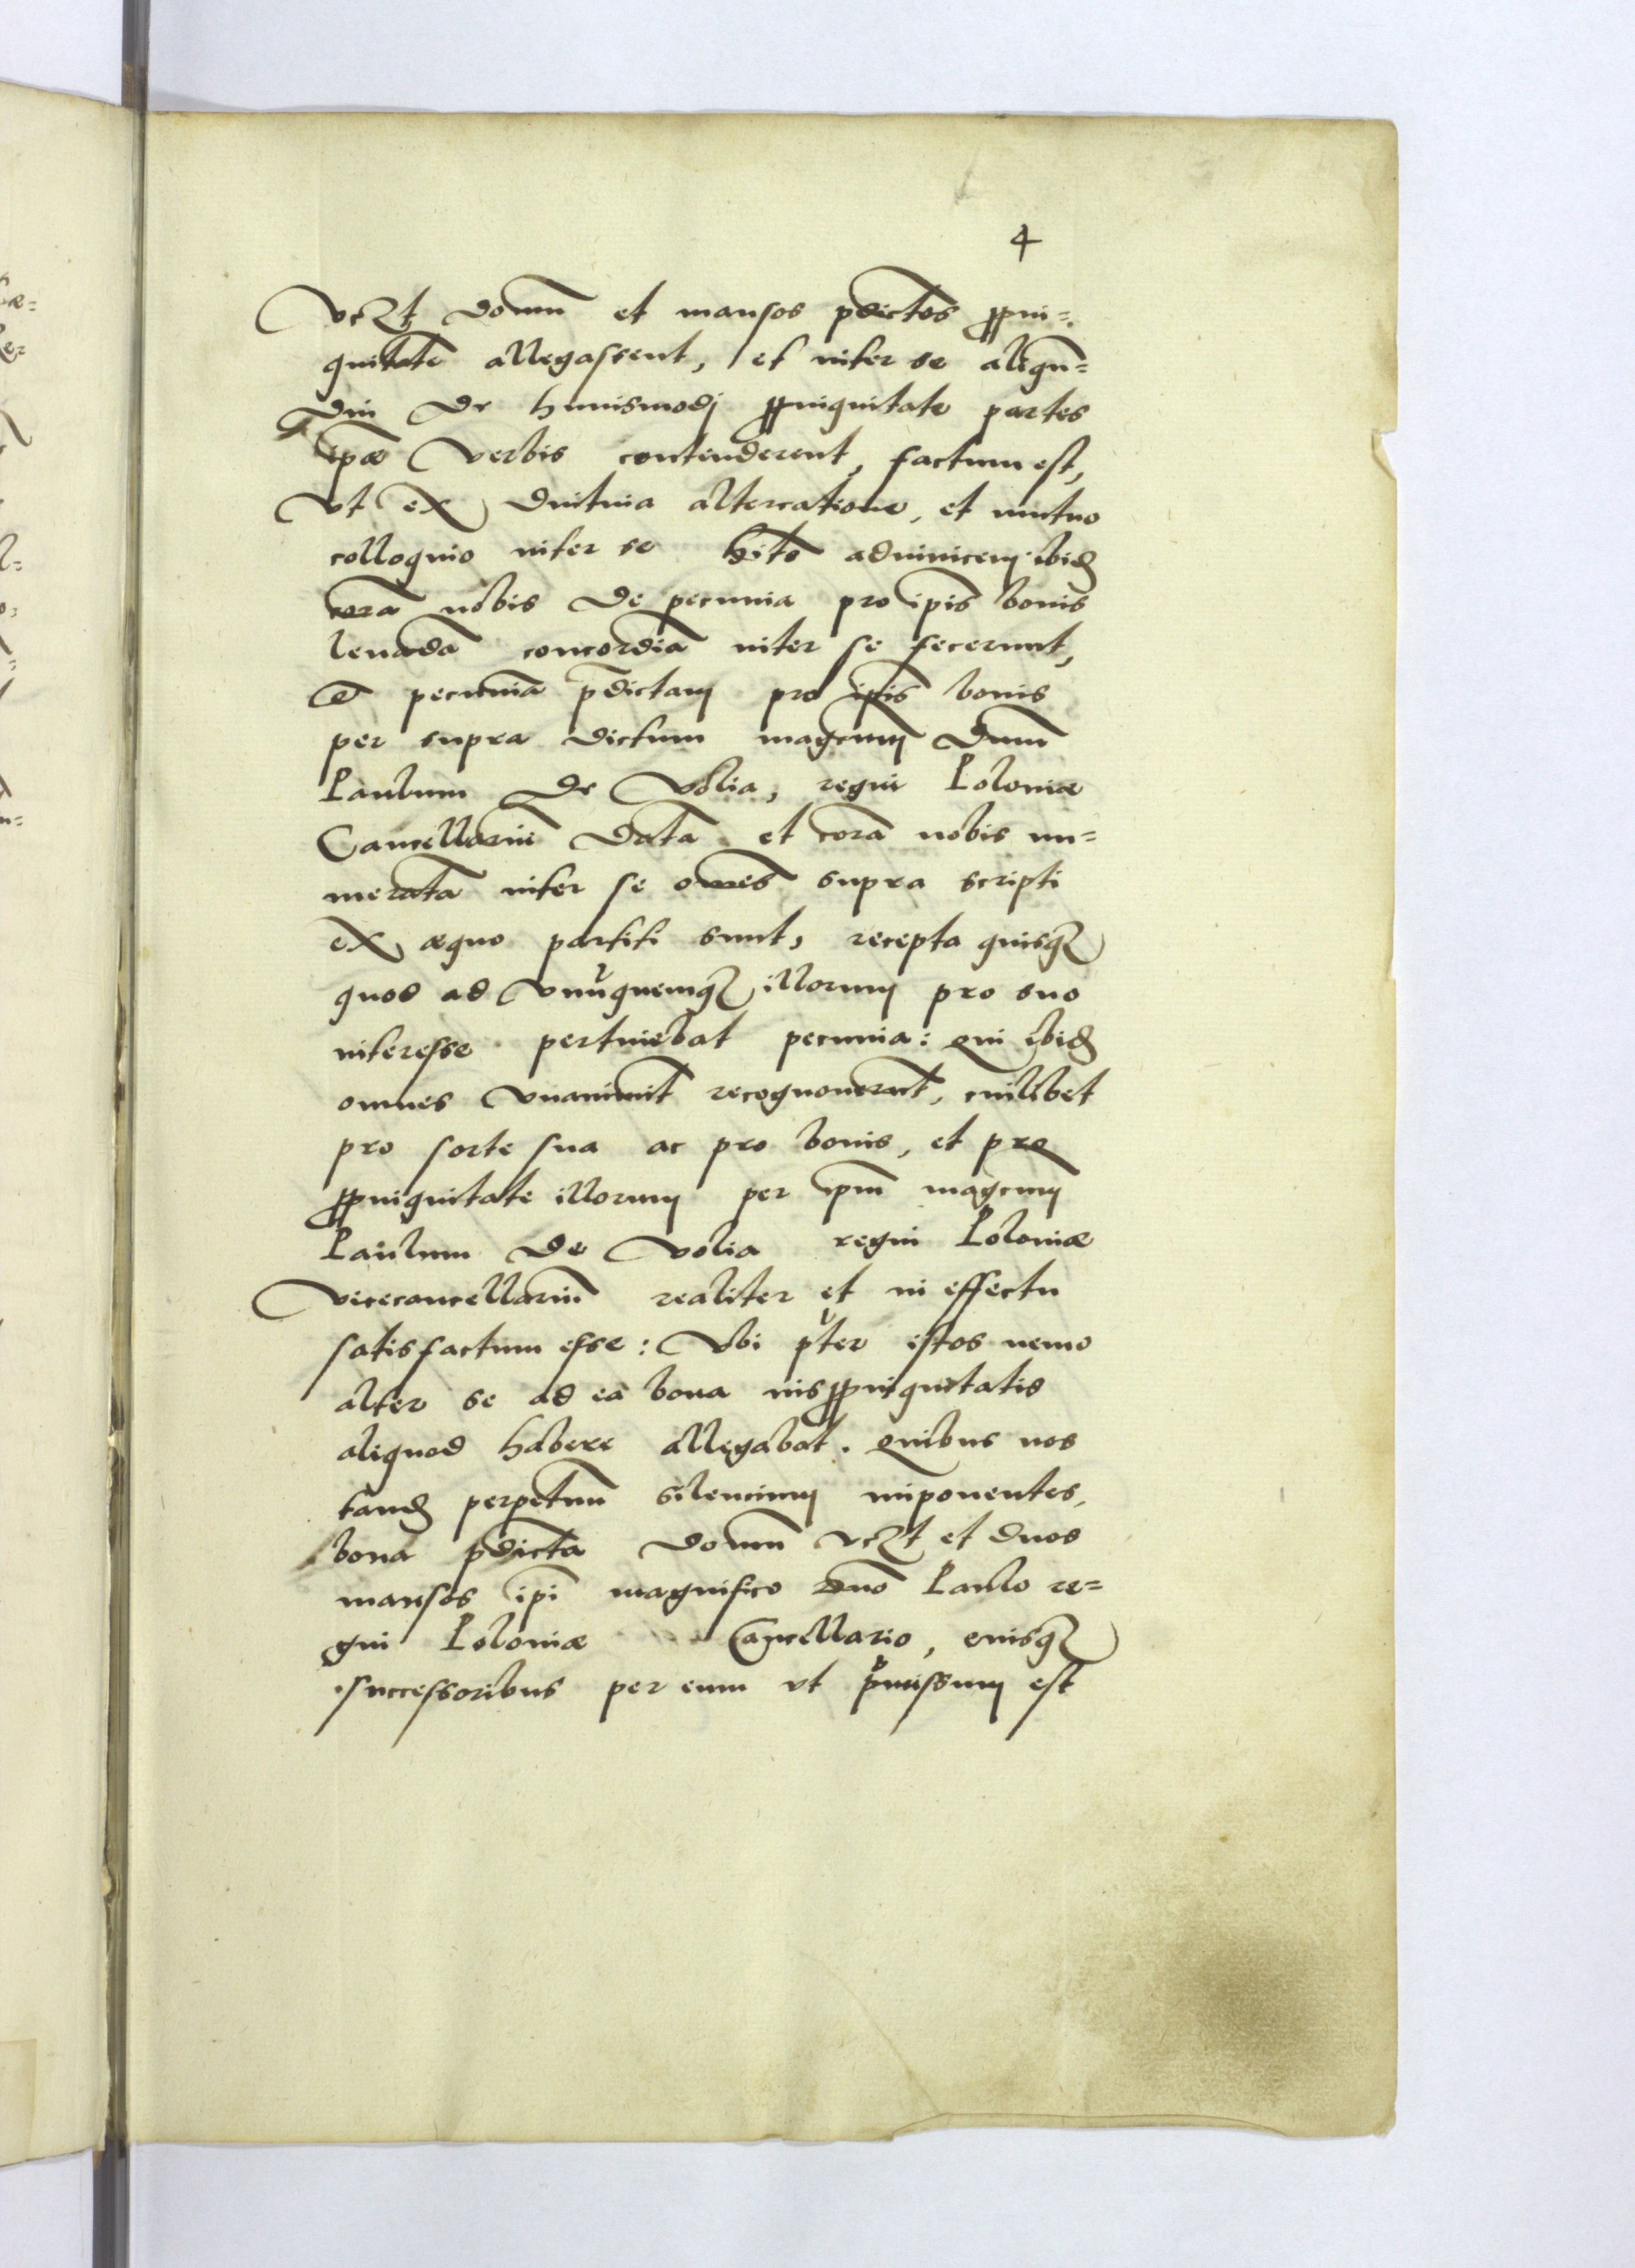 4
vczt domū et mansos pdictos ꝓpin=
quitatē allegassent, et inter se aliqū=
diu de huiusmodj ꝓpinquitate partes
ipæ verbis contenderent, factum est,
vt ex diutina altercatione, et mutuo
colloquio inter se hito adinuicem ibid
corā nobis de pecunia pro ipis bonis
leuādā concordiā inter se fecerunt,
et pecuniā pdictam pro ipis bonis
per supra dictum magcum Dnum
Paulum de Volia, regni Poloniæ
Cancellariū datā et corā nobis nu=
meratā inter se omēs supra scripti
ex æquo partiti sunt, recepta quisqꝫ
quod ad vnūquemqꝫ illorum pro suo
interesse pertinebat pecunia: qui ibid
omnes vnanimit recognouerūt, cuilibet
pro sorte sua ac pro bonis, et pro
ꝓpinquitate illorum per ipm magcum
Paulum de Volia regni Poloniæ
vicecancellariū realiter et in effectu
satisfactum esse: Vbi pter istos nemo
alter se ad ea bona ius ꝓpinquitatis
aliquod habere allegabat. quibus nos
tand perpetuū silencium imponentes,
bona pdicta domū vczt et duos
mansos ipi magnifico dno Paulo re=
gni Poloniæ Cancellario, eiusqꝫ
successoribus per eum vt pmissum est